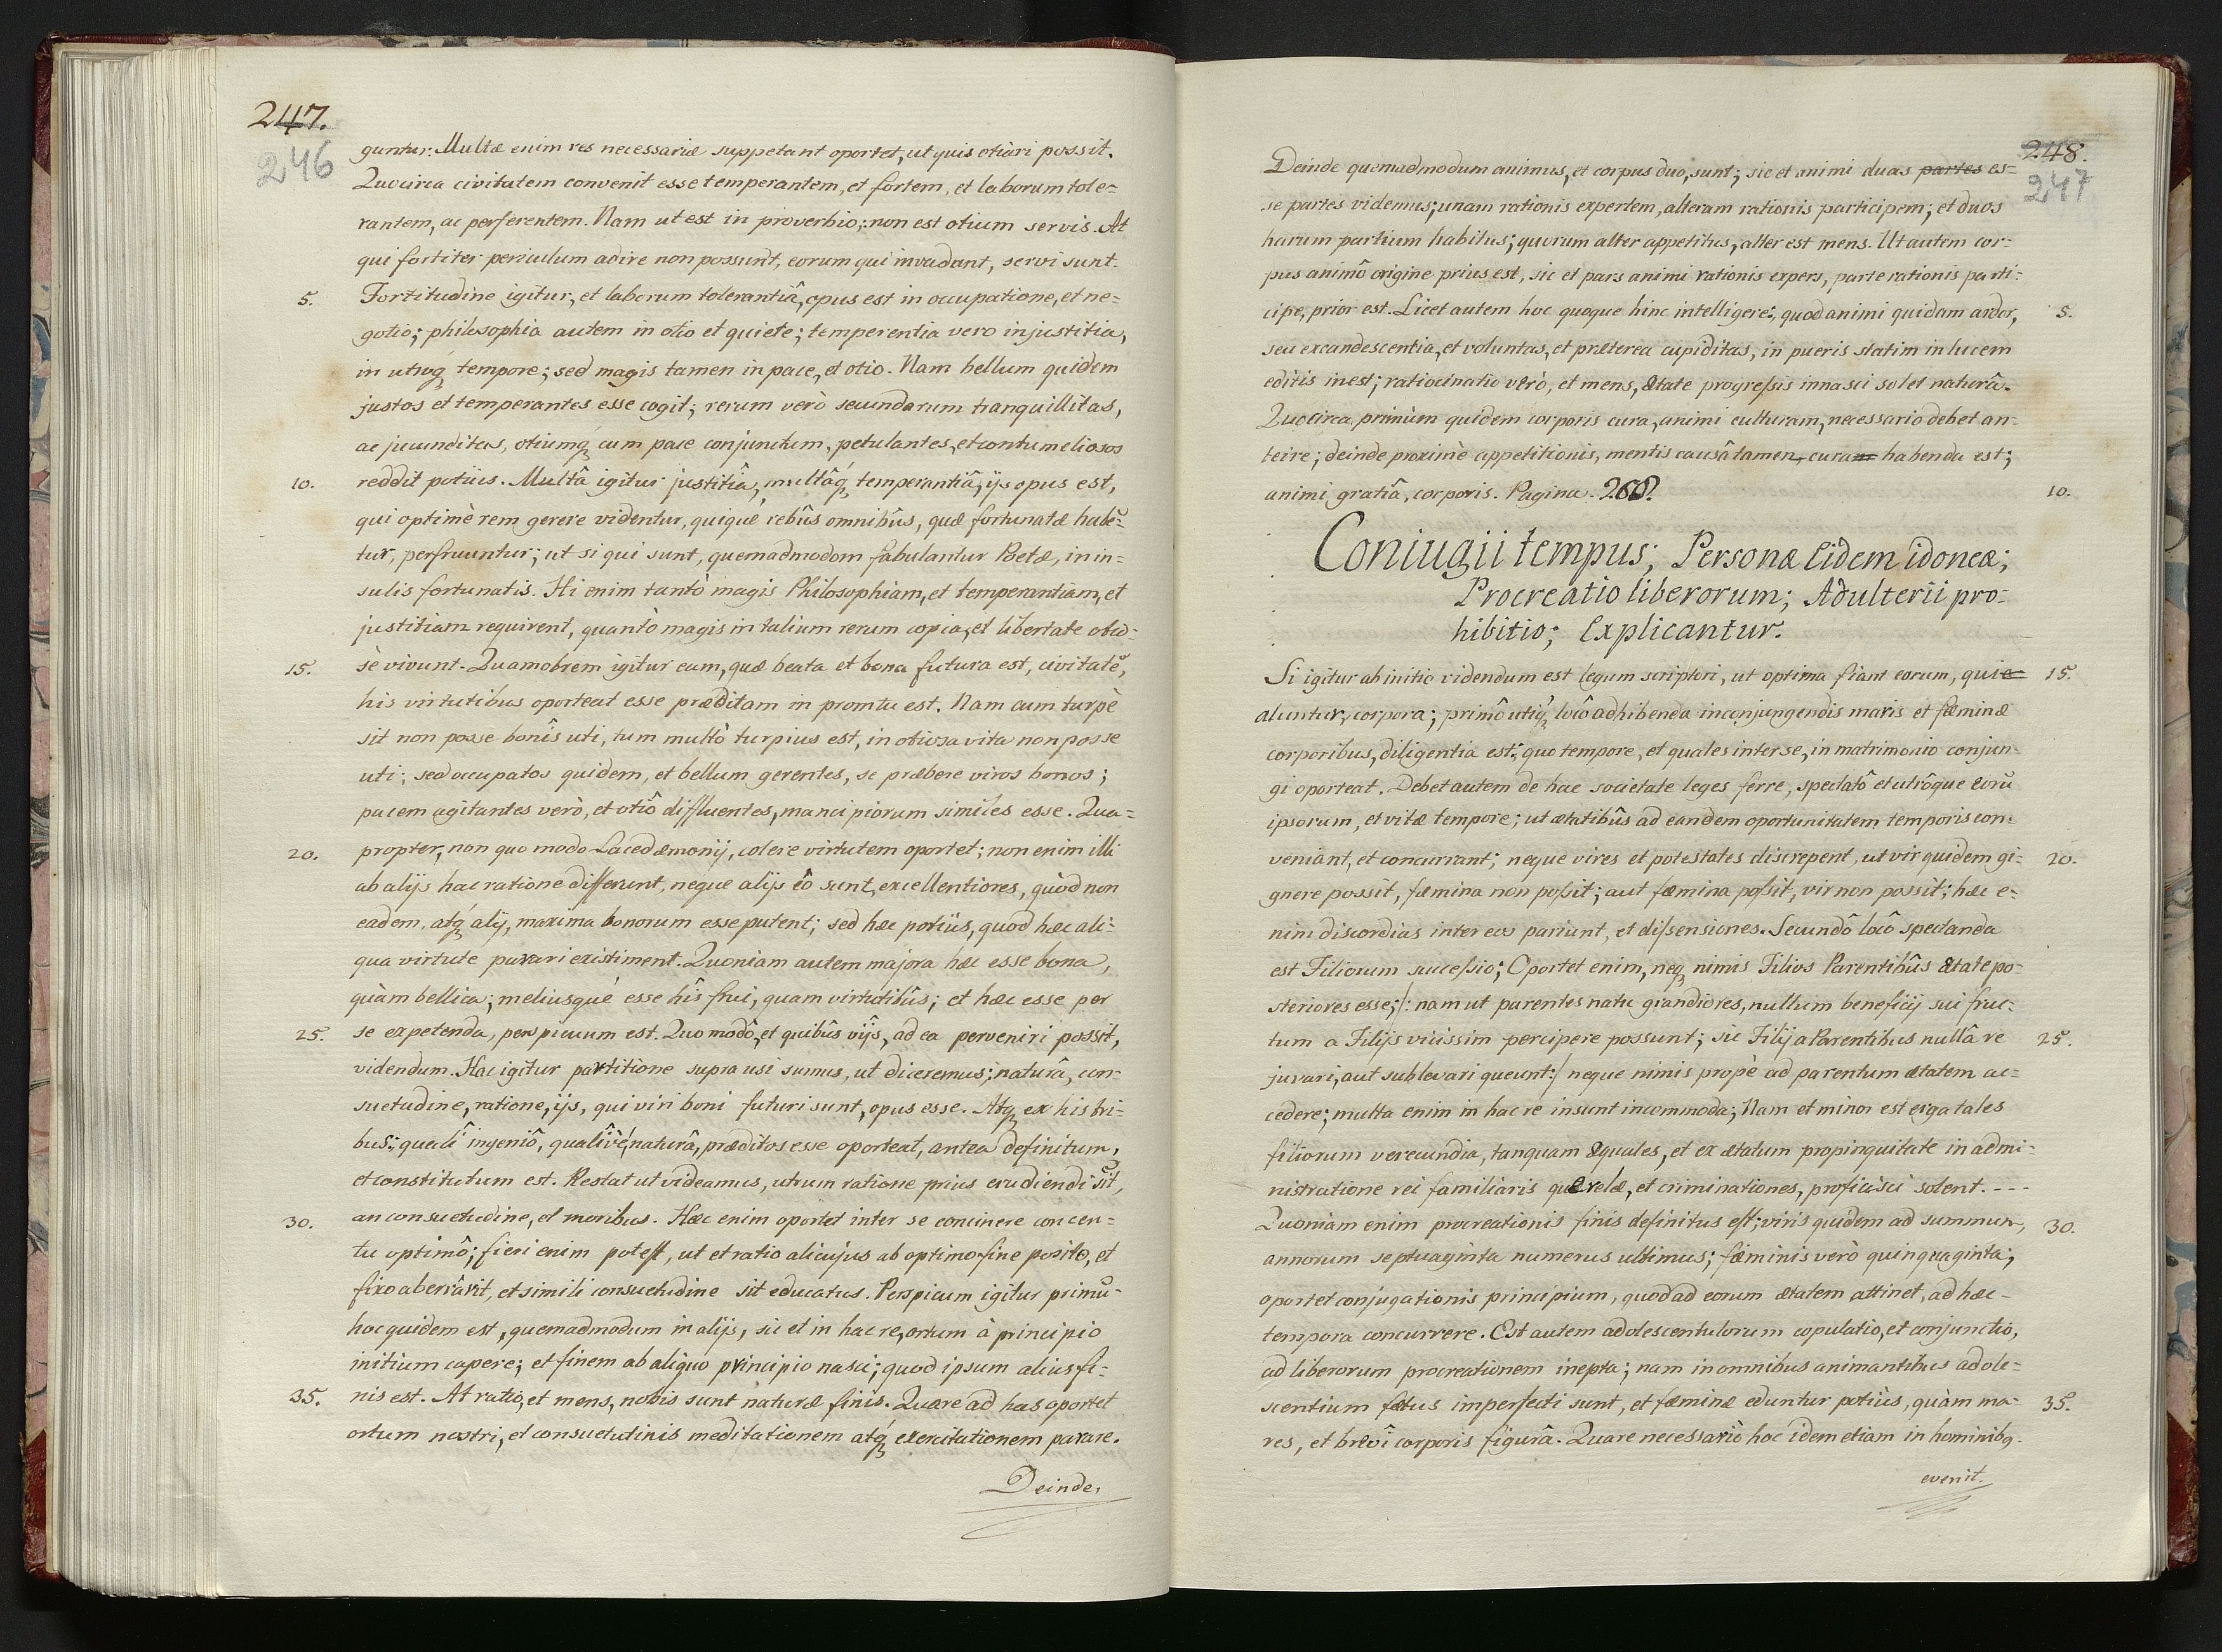 247.
246
guntur. Multæ enim res necessariæ suppetant oportet, ut quis otiari possit.
Quocirca civitatem convenit esse temperantem, et fortem, et laborum tole=
rantem, ac perferentem. Nam ut est in proverbio; non est otium servis. At
qui fortiter periculum adire non possunt, eorum qui invadunt, servi sunt.
5. Fortitudine igitur, et laborum tolerantiâ, opus est in occupatione, et ne=
gotio; philosophia autem in otio et quiete; temperentia vero injustitia,
in utroqꝫ tempore; sed magis tamen in pace, et otio. Nam bellum quidem
justos et temperantes esse cogit; rerum verò secundarum tranquillitas,
ac jucunditas, otiumqꝫ cum pace conjunctum, petulantes, et contumeliosos
10. reddit potiùs. Multâ igitur justitiâ, multâqꝫ temperantiâ, ijs opus est,
qui optimè rem gerere videntur, quiqué rebûs omnibûs, quæ fortunatæ habē=
tur, perfruuntur; ut si qui sunt, quemadmodom fabulantur Poetæ, in in=
sulis fortunatis. Hi enim tantò magis Philosophiam, et temperantiam, et
justitiam requirent, quantò magis in talium rerum copia, et libertate otio=
15. sè vivunt. Quamobrem igitur eam, quæ beata et bona futura est, civitatē,
his virtutibus oporteat esse præditam in promtu est. Nam cum turpè
sit non posse bonîs uti, tum multò turpius est, in otiosa vita non posse
uti; sed occupatos quidem, et bellum gerentes, se præbere viros bonos;
pacem agitantes verò, et otiô diffluentes, mancipiorum similes esse. Qua=
20. propter, non quo modo Lacedæmonij, colere virtutem oportet; non enim illi
ab alijs hac ratione differunt, neque alijs eô sunt, excellentiores, quòd non
eadem, atqꝫ alij, maxima bonorum esse putent; sed hæc potiùs, quod hæc ali=
qua virtute parari existiment. Quoniam autem majora hæc esse bona,
quàm bellica; meliusqué esse hîs frui, quam virtutibûs; et hæc esse per
25. se expetenda, perspicuum est. Quo modô, et quibûs vijs, ad ea perveniri possit,
videndum. Hac igitur partitione supra usi sumus, ut diceremus; naturâ, con=
suetudine, ratione, ijs, qui viri boni futuri sunt, opus esse. Atqꝫ ex his tri=
bus; qualî ingeniô, qualîvè, naturâ, præditos esse oporteat, antea definitum,
et constitutum est. Restat ut videamus, utrum ratione prius erudiendi sīt,
30. an consuetudine, et moribus. Hæc enim oportet inter se concinere concen=
tu optimô; fieri enim potest, ut et ratio alicujus ab optimo fine posito, et
fixo aberrârit, et simili consuetudine sit educatus. Perspicum igitur primū=
hoc quidem est, quemadmodum in alijs, sic et in hac re, ortum à principio
initium capere; et finem ab aliquo principio nasci; quod ipsum alius fi=
35. nis est. At ratio, et mens, nobis sunt naturæ finis. Quare ad has oportet
ortum nostri, et consuetudinis meditationem atqꝫ exercitationem parare.
Deinde,
248.
247
Deinde quemadmodum animus, et corpus duo, sunt; sic et animi duas partes es=
se partes videmus; unam rationis expertem, alteram rationis participem; et duos
harum partium habitus; quorum alter appetitus, alter est mens. Ut autem cor=
pus animô origine prius est, sic et pars animi rationis expers, parte rationis parti=
cipe, prior est. Licet autem hoc quoque hinc intelligere, quod animi quidam ardor, 5.
seu excandescentia, et voluntas, et præterea cupiditas, in pueris statim in lucem
editis inest; ratiocinatio vèrò, et mens, ætate progressis innasci solet naturâ.
Quocirca primùm quidem corporis cura, animi culturam, necessario debet an=
teire; deinde proximè appetitionis, mentis causâ tamen, curam habenda est;
animi gratiâ, corporis. Pagina. 268. 10.
Coniugii tempus; Personæ Eidem idoneæ;
Procreatio liberorum; Adulterii pro=
hibitio; Explicantur.
Si igitur ab initio videndum est legum scriptori, ut optima fiant eorum, quia 15.
aluntur, corpora; primô utiqꝫ locô adhibenda in conjungendis maris et fæminæ
corporibus, diligentia est; quo tempore, et quales inter se, in matrimonio conjun=
gi oporteat. Debet autem de hac societate leges ferre, spectatô et utrôque eorū
ipsorum, et vitæ tempore; ut ætatibûs ad eandem oportunitatem temporis con=
veniant, et concurrant; neque vires et potestates discrepent, ut vir quidem gi= 20.
gnere possit, fæmina non possit; aut fæmina possit, vir non possit; hæc e=
nim discordias inter eos pariunt, et dissensiones. Secundô locô spectanda
est Filiorum successio; Oportet enim, neqꝫ nimis Filios Parentibûs ætate po=
steriores esse; /: nam ut parentes natu grandiores, nullum beneficij sui fruc=
tum a Filijs vicissim percipere possunt; sic Filij a Parentibus nullâ re 25.
juvari, aut sublevari queunt :/ neque nimis propè ad parentum ætatem ac=
cedere; multa enim in hac re insunt incommoda; Nam et minor est erga tales
filiorum verecundia, tanquam æquales, et ex ætatum propinquitate in admi=
nistratione rei familiaris quærelæ, et criminationes, proficisci solent. - - -
Quoniam enim procreationis finis definitus est; viris quidem ad summum, 30.
annorum septuaginta numerus ultimus; fæminis verò quinquaginta;
oportet conjugationis principium, quod ad eorum ætatem attinet, ad hæc=
tempora concurrere. Est autem adolescentulorum copulatio, et conjunctio,
ad liberorum procreationem inepta; nam in omnibus animantibus adole=
scentium fætus imperfecti sunt, et fæminæ eduntur potiùs, quàm ma= 35.
res, et brevî corporis figurâ. Quare necessariò hoc idem etiam in hominibꝫ
evenit.